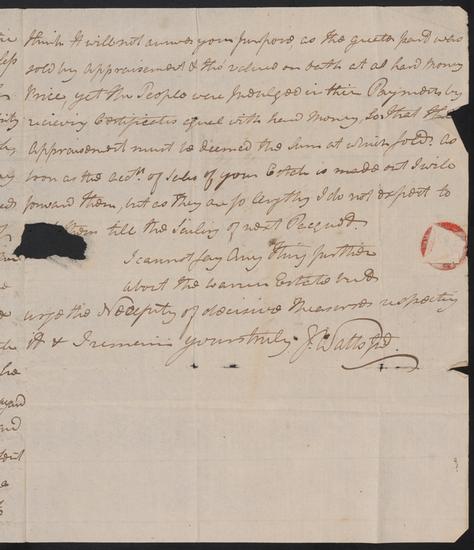 think it will not answer your purpose, as the greater part was
sold by appraisement & tho' valued on oath at a hard money
Price, yet the People were Indulged in their Payments by
recieving Certificates equal with hard Money, So that the
appraisement must be deemed the Sum at which sold. as
soon as the acct.s of Sales of your Estate is made out I will
forward them, but as they are so lengthy I do not expect to
them till the Sailing of next Pacquet.
I cannot say any thing further
about the Estate but
urge the Necessity of decisive Measures respecting
it & I remain yours truly J. Watts Jr.